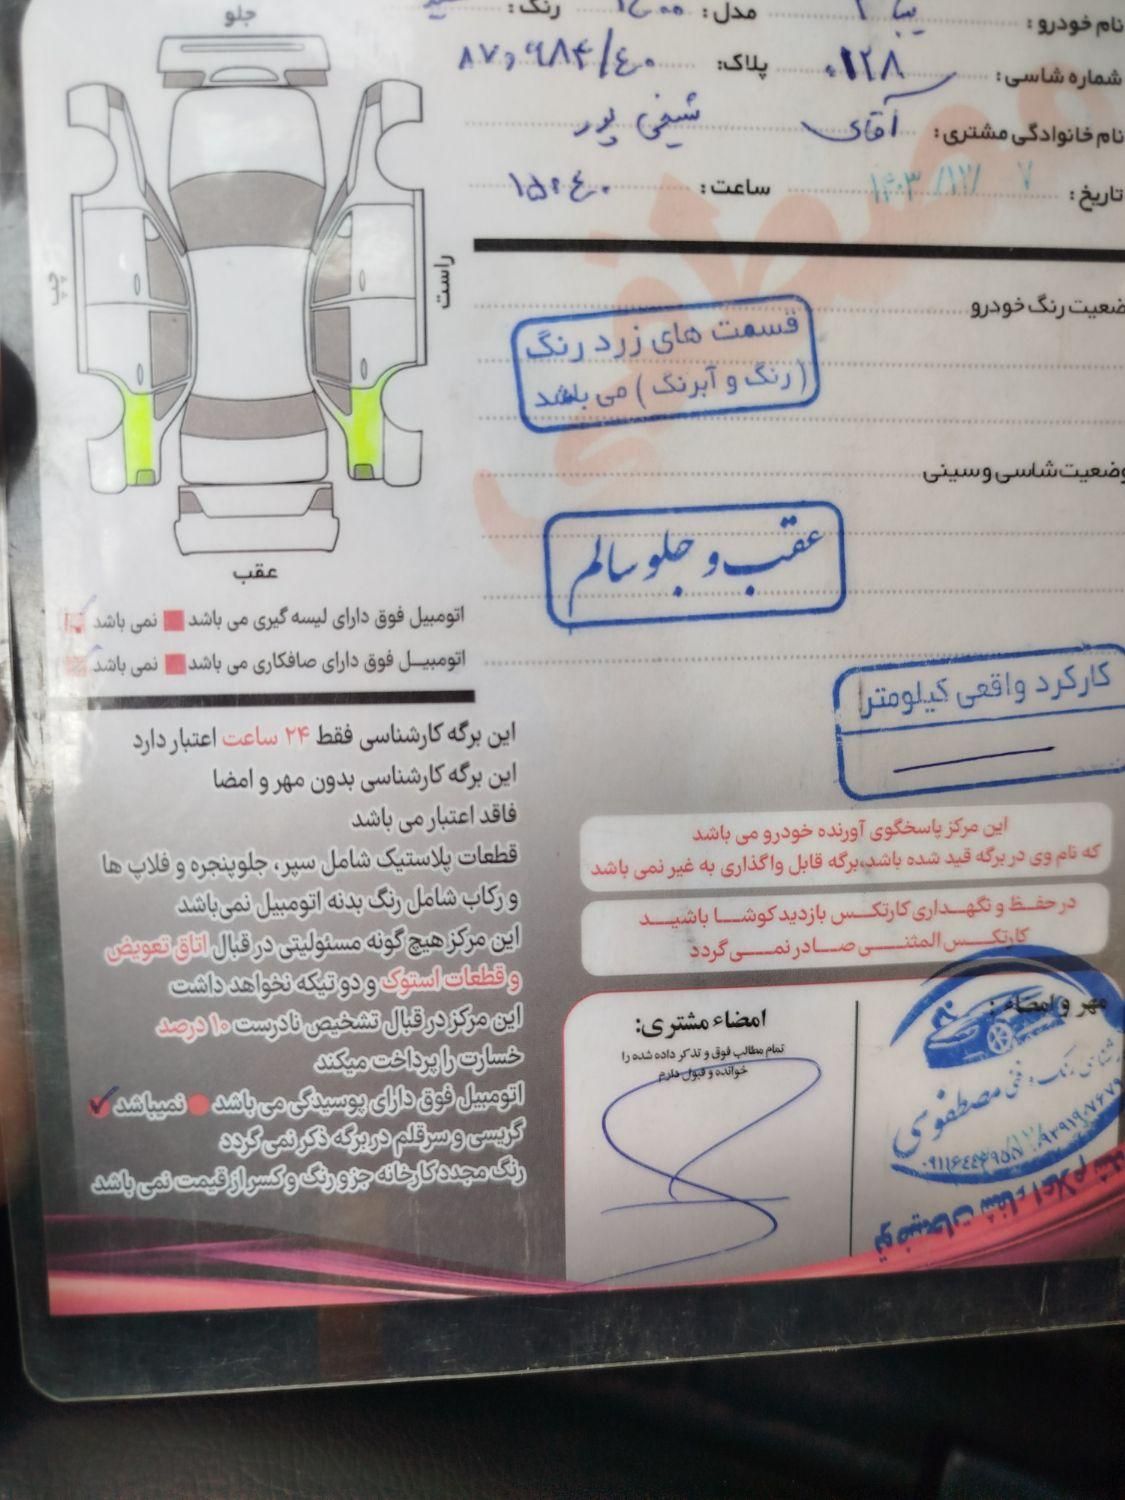 نام خودرو: تیبا ۲ مدل: ۱۴۰۰ رنگ: سفید
شماره شاسی: ۰۱۲۸ پلاک: ۸۷و۹۸۴/۴۰
نام خانوادگی مشتری: آقای شیخی پور
تاریخ: ۱۴۰۳/۱۲/۷ ساعت: ۱۵:۴۰
جلو
چپ
راست
عقب
وضعیت رنگ خودرو
قسمت های زرد رنگ
(رنگ و آبرنگ) می باشد
وضعیت شاسی و سینی
عقب و جلو سالم
کارکرد واقعی کیلومتر
اتومبیل فوق دارای لیسه گیری می باشد نمی باشد
اتومبیل فوق دارای صافکاری می باشد نمی باشد
این برگه کارشناسی فقط ۲۴ ساعت اعتبار دارد
این برگه کارشناسی بدون مهر و امضا
فاقد اعتبار می باشد
قطعات پلاستیک شامل سپر، جلوپنجره و فلاپ ها
و رکاب شامل رنگ بدنه اتومبیل نمی‌باشد
این مرکز هیچ گونه مسئولیتی در قبال اتاق تعویض
و قطعات استوک و دو تیکه نخواهد داشت
این مرکز در قبال تشخیص نادرست ۱۰ درصد
خسارت را پرداخت میکند
اتومبیل فوق دارای پوسیدگی می باشد نمیباشد
گریسی و سرقلم در برگه ذکر نمی گردد
رنگ مجدد کارخانه جز و رنگ و کسر از قیمت نمی باشد
این مرکز پاسخگوی آورنده خودرو می باشد
که نام وی در برگه قید شده باشد،برگه قابل واگذاری به غیر نمی باشد
در حفظ و نگهداری کارتکس بازدید کوشا باشید
کارتکس المثنی صادر نمی گردد
امضاء مشتری:
تمام مطالب فوق و تذکر داده شده را
خوانده و قبول دارم
مهر و امضاء:
رنگ و فنی مصطفوی
توضیحات شفاء اعلام شد